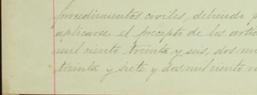 procedimientos civiles, debiendo
aplicarse el precepto de los artic
mil ciento treinta y seis, dos m
treinta y siete y dos mil ciento